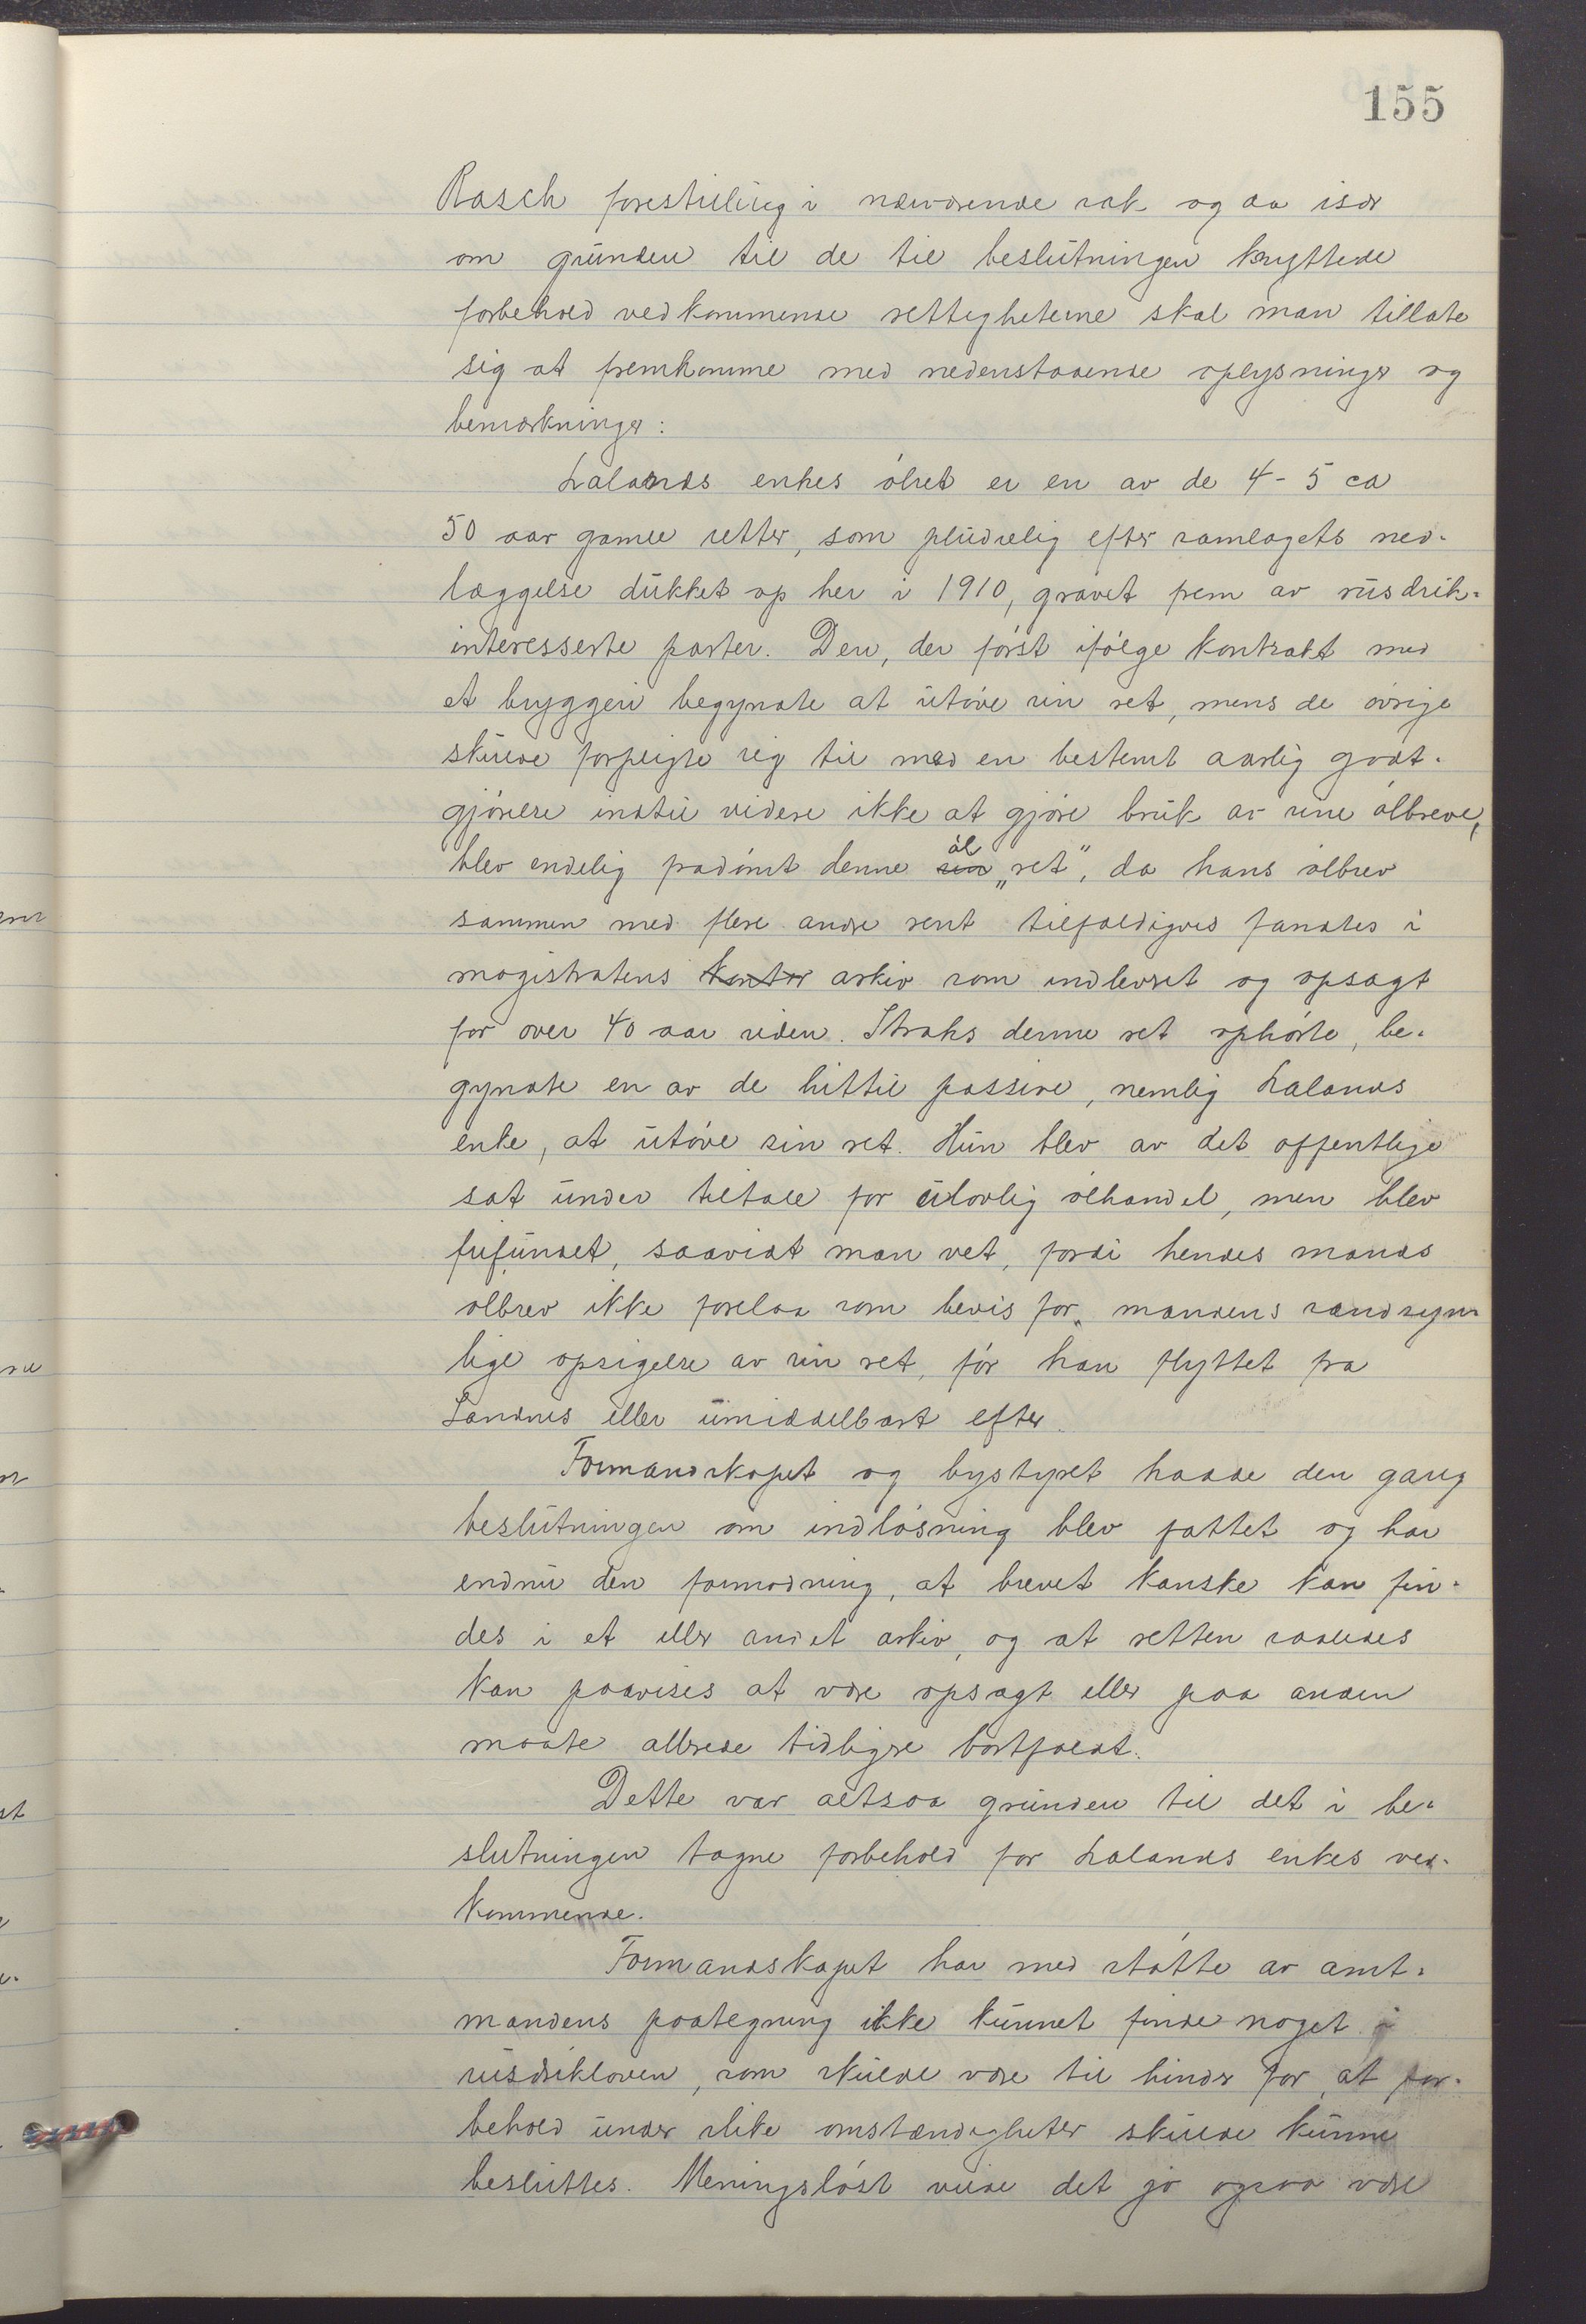 155
Rasch forestilling i nærværende sak og da især
om grunden til de til beslutningen knyttede
forbehold vedkommende rettigheterne skal man tillate
sig at fremkomme med nedenstaaende oplysninger og
bemærkninger:
Lalands enkes ølret er en av de 4-5 ca
50 aar gamle retter, som pludselig efter samlagets ned-
læggelse dukket op her i 1910, gravet frem av rusdrik-
interesserte parter. Den, der først ifølge kontrakt med
et bryggeri begyndte at utøve sin ret, mens de øvrige
skulde forpligte sig til mod en bestemt aarlig godt-
gjørelse indtil videre ikke at gjøre bruk av sine ølbreve,
øl
blev endelig fradømt denne sin „ret", da hans ølbrev
sammen med flere andre rent tilfældigvis fandtes i
magistratens kontor arkiv som indlevret og opsagt
for over 40 aar siden. Straks denne ret ophørte, be-
gyndte en av de hittil passive, nemlig Lalands
enke, at utøve sin ret. Hun blev av det offentlige
sat under tiltale for ulovlig ølhandel, men blev
frifundet, saavidt man vet, fordi hendes mands
ølbrev ikke forelaa som bevis for mandens sandsyn-
lige opsigelse av sin ret, før han flyttet fra
Sandnes eller umiddelbart efter.
Formandskapet og bystyret hadde den gang
beslutningen om indløsning blev fattet og har
endnu den formodning, at brevet kanske kan fin-
des i et eller andet arkiv, og at retten saaledes
kan paavises at være opsagt eller paa anden
maate allerede tidligere bortfaldt.
Dette var altsaa grunden til det i be-
slutningen tagne forbehold for Lalands enkes ved-
kommende.
Formandskapet har med støtte av amt-
mandens paategning ikke kunnet finde noget i
rusdrikloven, som skulde være til hinder for, at for-
behold under slike omstændigheter skulde kunne
besluttes. Meningsløst vilde det jo ogsaa være